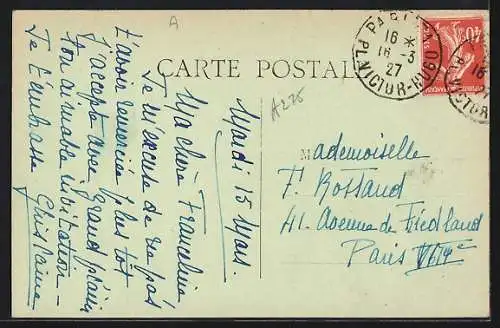 A
CARTE POSTALE
A225
Mardi 15 Mars.
Ma chère Franceline
Je m'excuse de ne pas
t'avoir remerciée plus tôt
J'accepte avec grand plaisir
ton aimable invitation -
Je t'embrasse Ghislaine
PARIS
16 *
16 - 3
27
PL. VICTOR-HUGO
40
Mademoiselle
F. Rostand
41. Avenue de Friedland
Paris VIIIe